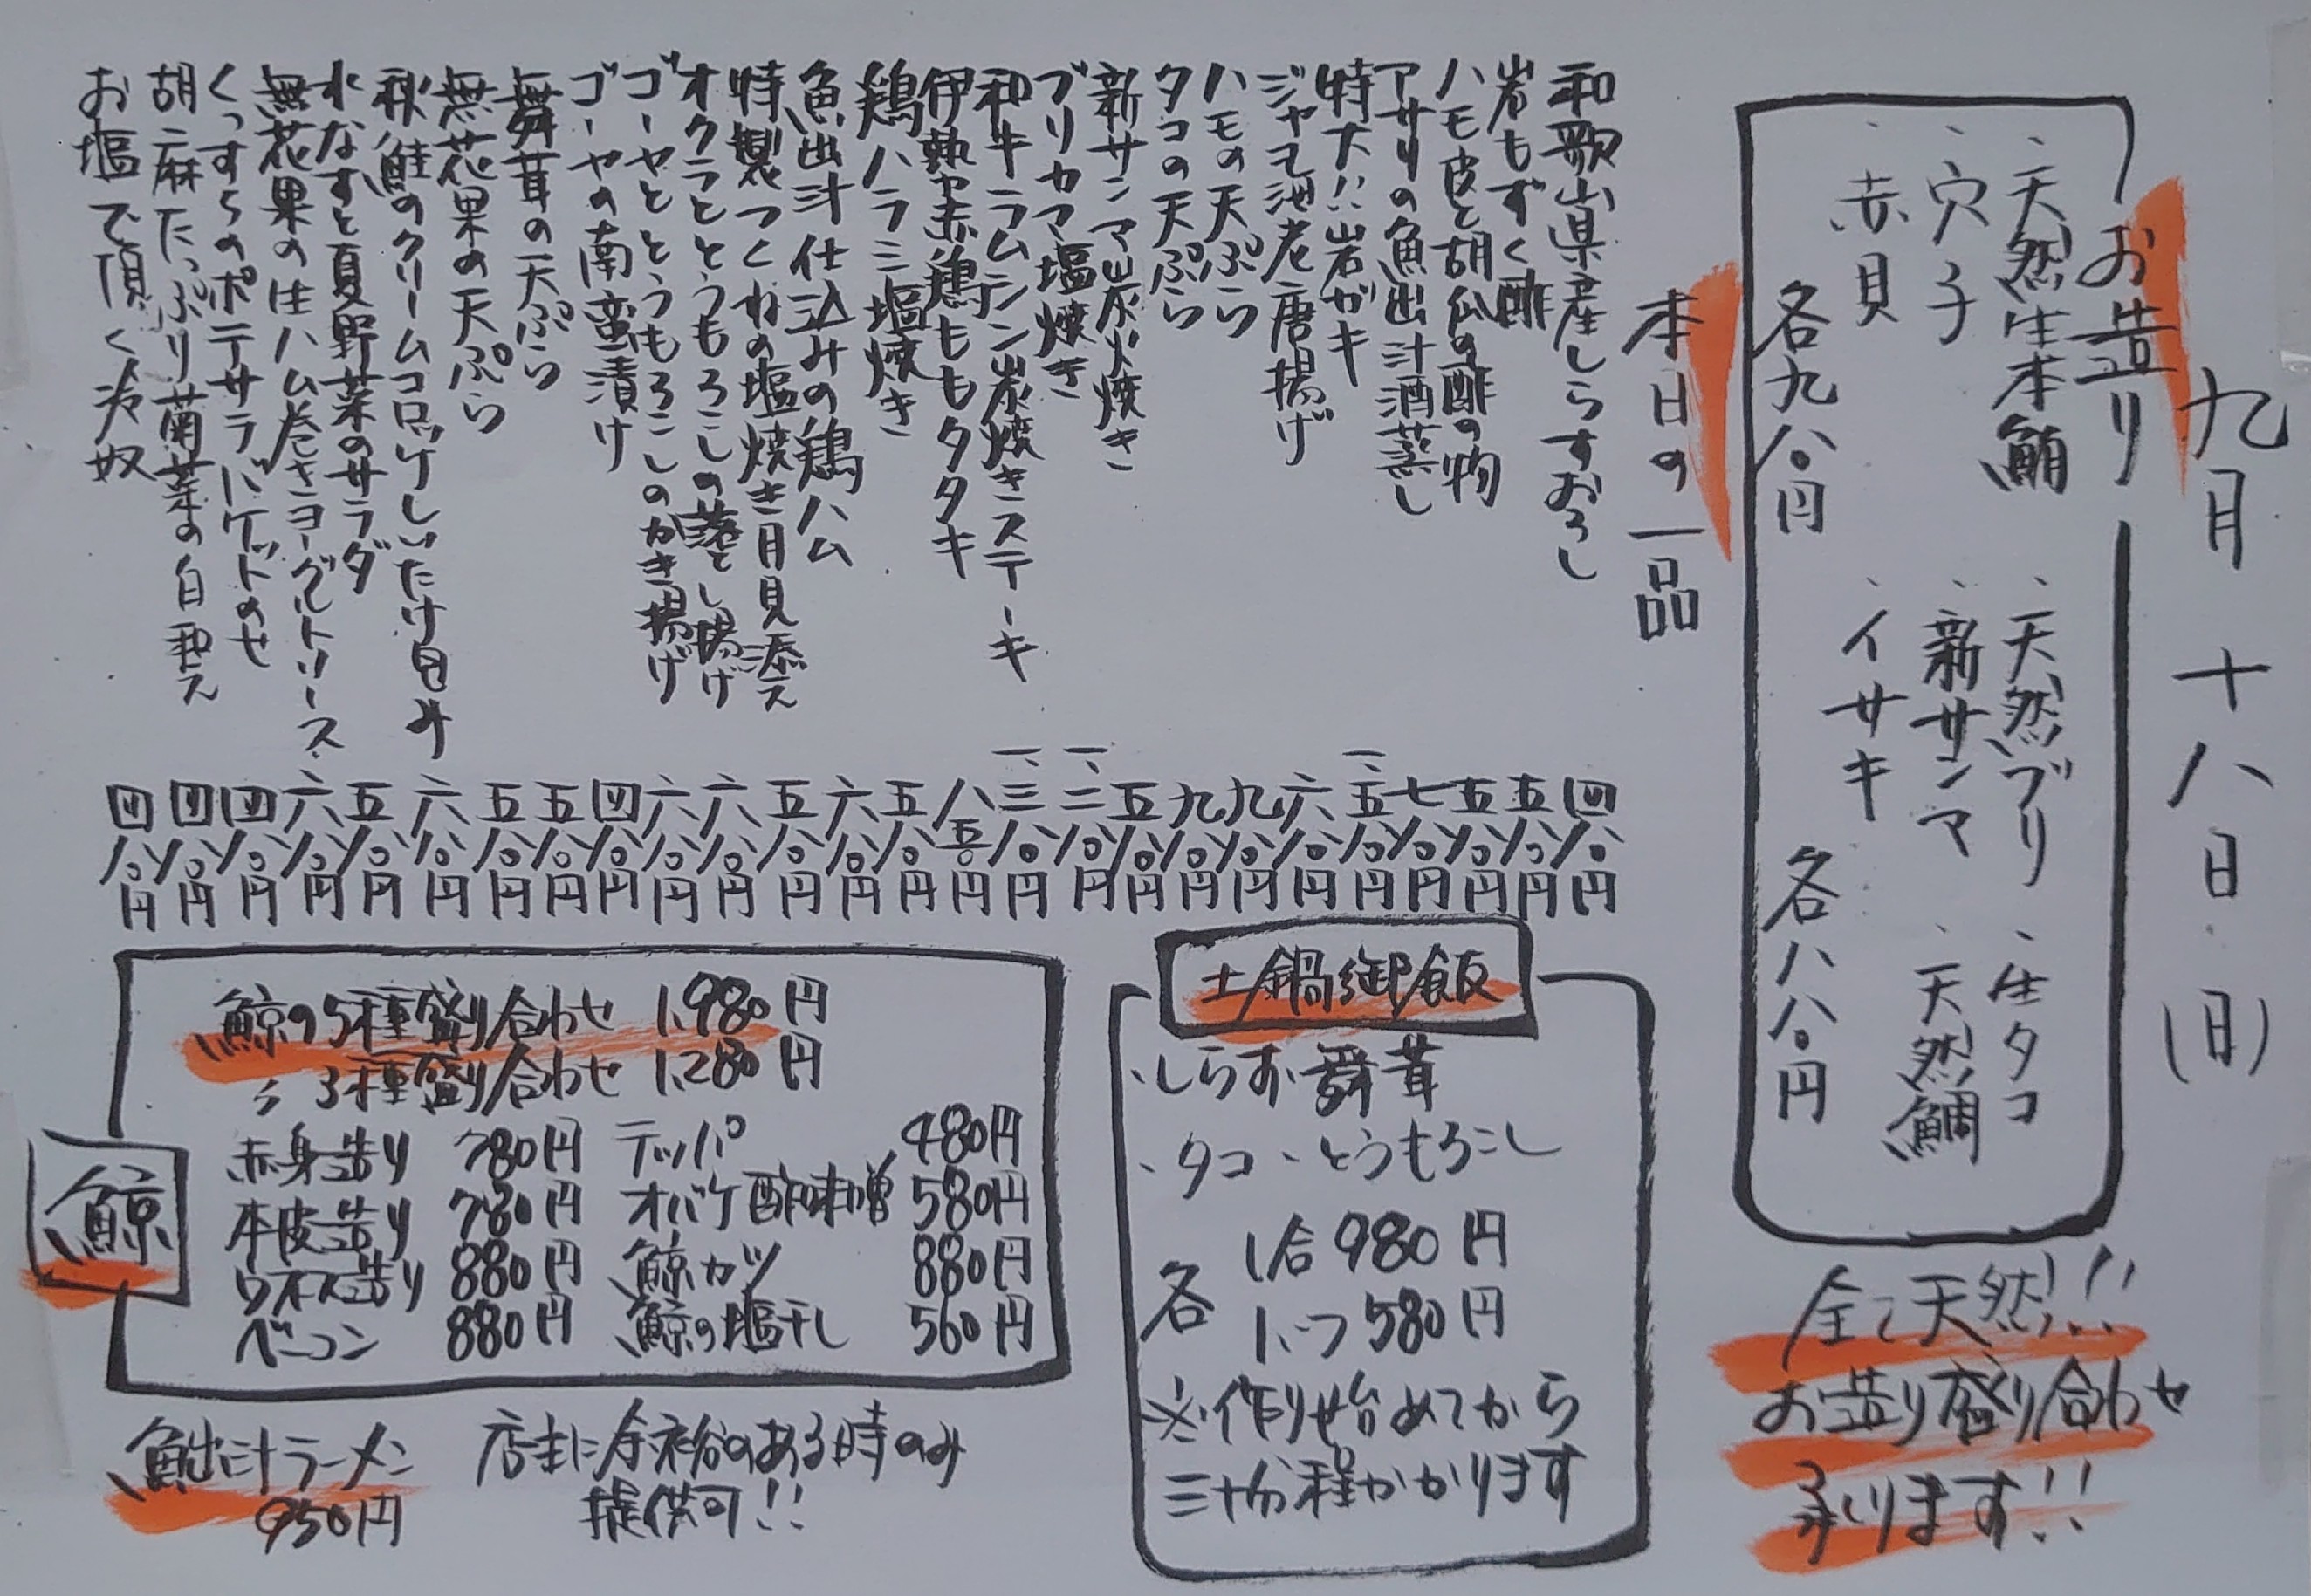 九月十八日(日)
お造り
、天然生本鮪
、天然ブリ
、生タコ
、穴子
、新サンマ
、天然鯛
、赤貝
、イサキ
各九八〇円
各八八〇円
全て天然!!
お造り盛り合わせ
承ります!!
本日の一品
和歌山県産しらすおろし 四八〇円
岩もずく酢 五八〇円
ハモ皮と胡瓜の酢の物 五八〇円
アサリの魚出汁酒蒸し 七八〇円
特大!!岩ガキ 一、五八〇円
ジャコ海老唐揚げ 六八〇円
ハモの天ぷら 九八〇円
タコの天ぷら 九八〇円
新サンマ炭火焼き 五八〇円
ブリカマ塩焼き 一、二八〇円
和牛ラムシン炭焼きステーキ 一、三八〇円
伊勢赤鶏ももタタキ 八五〇円
鶏ハラミ塩焼き 五八〇円
魚出汁仕込みの鶏ハム 六八〇円
特製つくねの塩焼き月見添え 五八〇円
オクラととうもろこしの落とし揚げ 六八〇円
ゴーヤととうもろこしのかき揚げ 六八〇円
ゴーヤの南蛮漬け 四八〇円
舞茸の天ぷら 五八〇円
無花果の天ぷら 五八〇円
秋鮭のクリームコロッケしいたけ包み 六八〇円
水なすと夏野菜のサラダ 五八〇円
無花果の生ハム巻きヨーグルトソース 六八〇円
くんすらのポテサラバケットのせ 四八〇円
胡麻たっぷり菊菜の白和え 四八〇円
お塩で頂く冷奴 四八〇円
土鍋御飯
、しらす、舞茸
、タコ、とうもろこし
各
1合 980円
1/2つ 580円
※作り始めてから
三十分程かかります
鯨
鯨の5種盛り合わせ 1,980円
〃 3種盛り合わせ 1,280円
赤身造り 780円 テッパ 480円
本皮造り 780円 オバケ酢味噌 580円
ウネス造り 880円 鯨カツ 880円
ベーコン 880円 鯨の塩干し 560円
魚出汁ラーメン
950円
店主に余裕のある時のみ
提供可!!